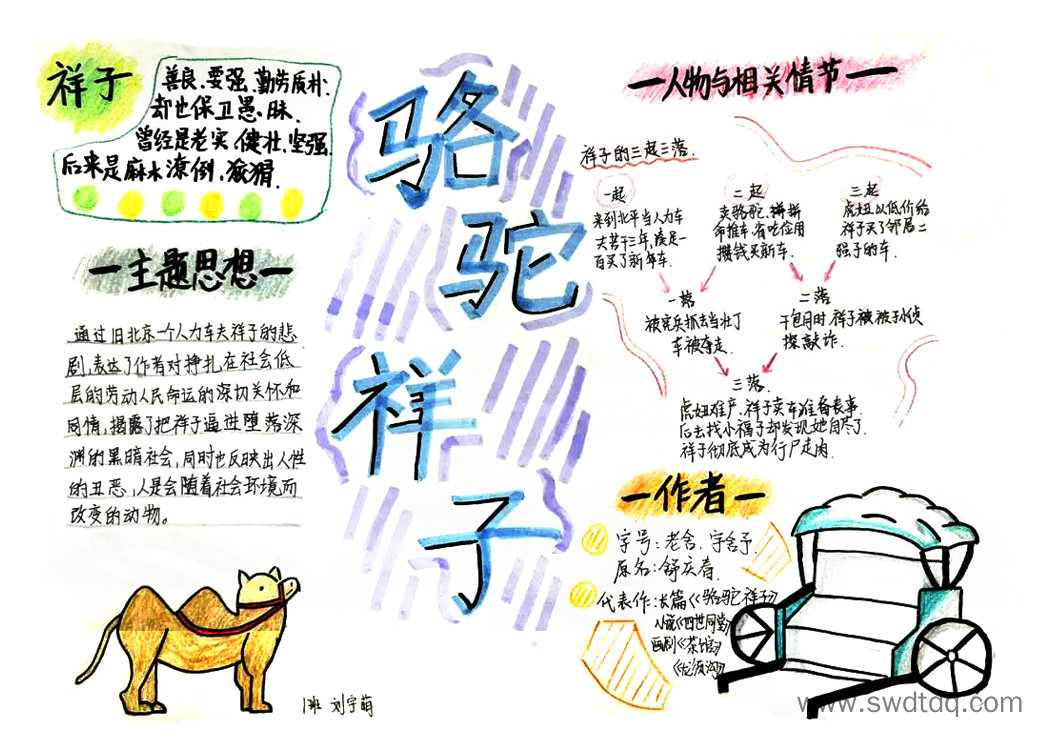 骆驼祥子
祥子
善良、要强、勤劳质朴.
却也保卫愚、昧.
曾经是老实、健壮、坚强
后来是麻木潦倒、狡猾.
主题思想
通过旧北京一个人力车夫祥子的悲
剧,表达了作者对挣扎在社会低
层的劳动人民命运的深切关怀和
同情,揭露了把祥子逼进堕落深
渊的黑暗社会,同时也反映出人性
的丑恶,人是会随着社会环境而
改变的动物。
1班 刘宇萌
人物与相关情节
祥子的三起三落.
一起
来到北平当人力车
夫苦干三年,凑足一
百买了新车.
二起
卖骆驼、拼拼
命推车、省吃俭用
攒钱买新车.
三起
虎妞以低价给
祥子买了邻居二
强子的车.
一落
车被夺走.
二落
干包月时 祥子被
三落
虎妞难产、祥子卖车准备丧事
后去找小福子却发现她自尽了.
祥子彻底成为行尸走肉.
作者
字号:老舍、字舍予
原名:舒庆春.
代表作:长篇《骆驼祥子》
《四世同堂》
《茶馆》
《龙须沟》
www.swdtdq.com